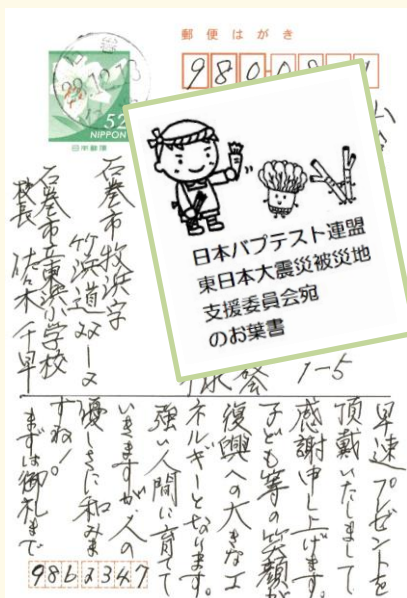 郵便はがき
980 08
52
NIPPON
日本郵便
日本バプテスト連盟
東日本大震災被災地
支援委員会宛
のお葉書
1-5
石巻市牧浜字
竹浜道
石巻市立東浜小学校
校長 佐々木千早
早速プレゼントを
頂戴いたしまして
感謝申し上げます。
子ども等の笑顔が
復興への大きなエ
ネルギーとなります。
強い人間に育てて
いきますが、人の
優しさに和みま
すね!。
まずは御礼まで
9862347